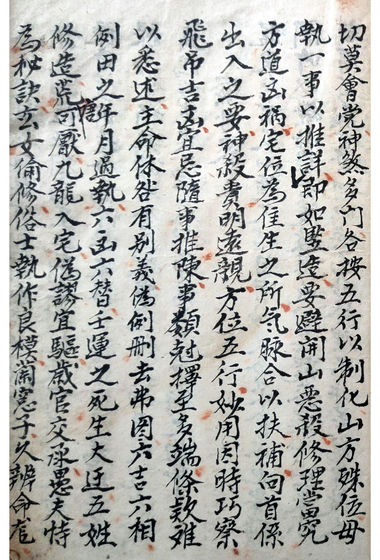 切莫會党神煞多門各按五行以制化山方殊位毋
執一事以推詳即如竪造要避開山惡殺修理當究
方道凶禍宅位為住生之所氣脉合以扶補向首係
出入之要神殺貴明遠親方位五行妙用因時巧察
飛吊吉凶宜忌隨事推陳事類冠擇至多端條款难
以悉述主命休咎有别義偽例刪去弗图六吉六相
例田之年月過執六凶六替壬運之死生大迂五姓
修造荒可厭九龍入宅偽謬宜驅歲官交承愚夫恃
為秘訣玄女偷修俗士執作良模蘭憲子久辨命龙